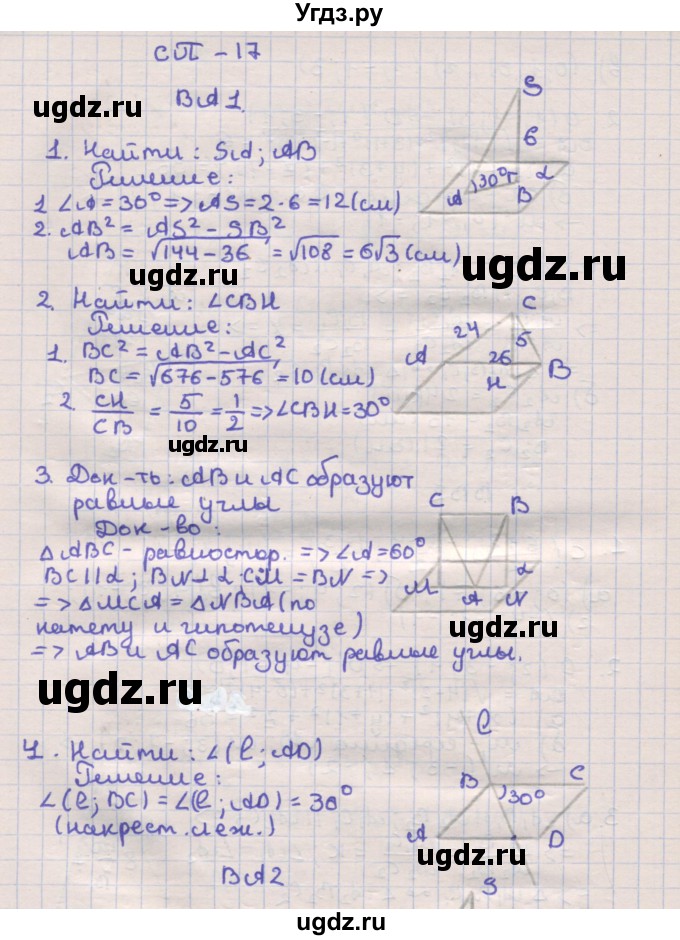 Угдз.ру
СП - 17
ВА1.
1. Найти: Sd; AB
Решение:
1 ∠A = 30° => AS = 2·6 = 12 (см)
2. AB² = AS² - SB²
AB = √144-36 = √108 = 6√3 (см)
S
6
30°
A
B
α
ugdz.ru
ugdz.ru
ugdz.ru
2. Найти: ∠CBH
Решение:
1. BC² = AB² - AC²
BC = √676-576 = 10 (см)
2. CH/CB = 5/10 = 1/2 => ∠CBH = 30°
C
24
5
A
26
H
B
ugdz.ru
3. Док-ть: AB и AC образуют
равные углы
Док-во:
△ABC - равностор. => ∠A = 60°
BC || α; BN ⊥ α. CM = BN =>
=> △MCA = △NBA (по
катету и гипотенузе)
=> AB и AC образуют равные углы.
C
B
M
A
N
α
ugdz.ru
ugdz.ru
ugdz.ru
4. Найти: ∠(ℓ; AD)
Решение:
∠(ℓ; BC) = ∠(ℓ; AD) = 30°
(накрест. леж.)
ℓ
B
C
30°
A
D
ugdz.ru
ВА2
9
ugdz.ru